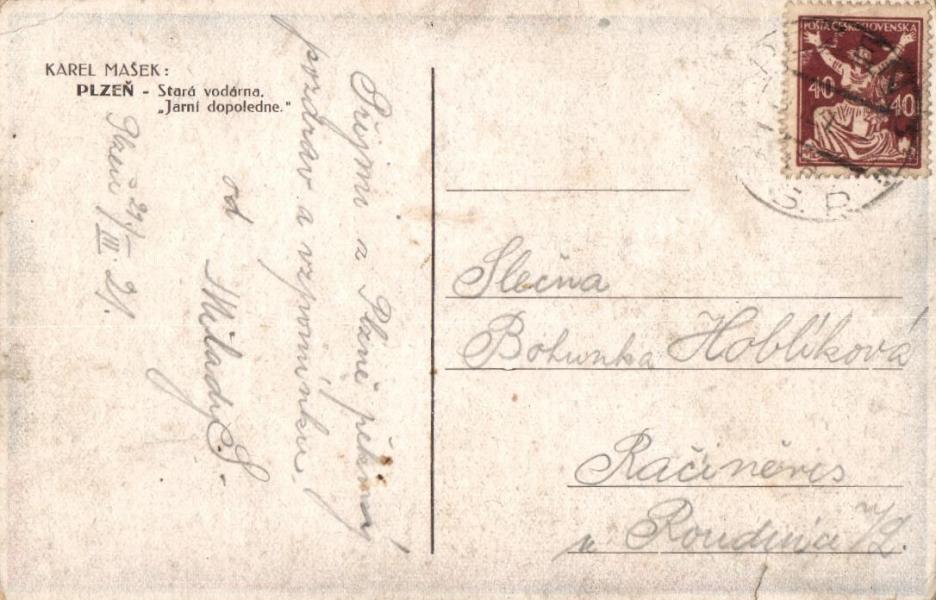 KAREL MAŠEK:
PLZEŇ - Stará vodárna.
„Jarní dopoledne."
Plzeň 29./III. 21.
Přijmi z Plzně pěkný
pozdrav a vzpomínku.
od Milady S.
POŠTA ČESKOSLOVENSKA
40 40
Slečna
Bohunka Hoblíková
Račiněves
u Roudnice n/L.